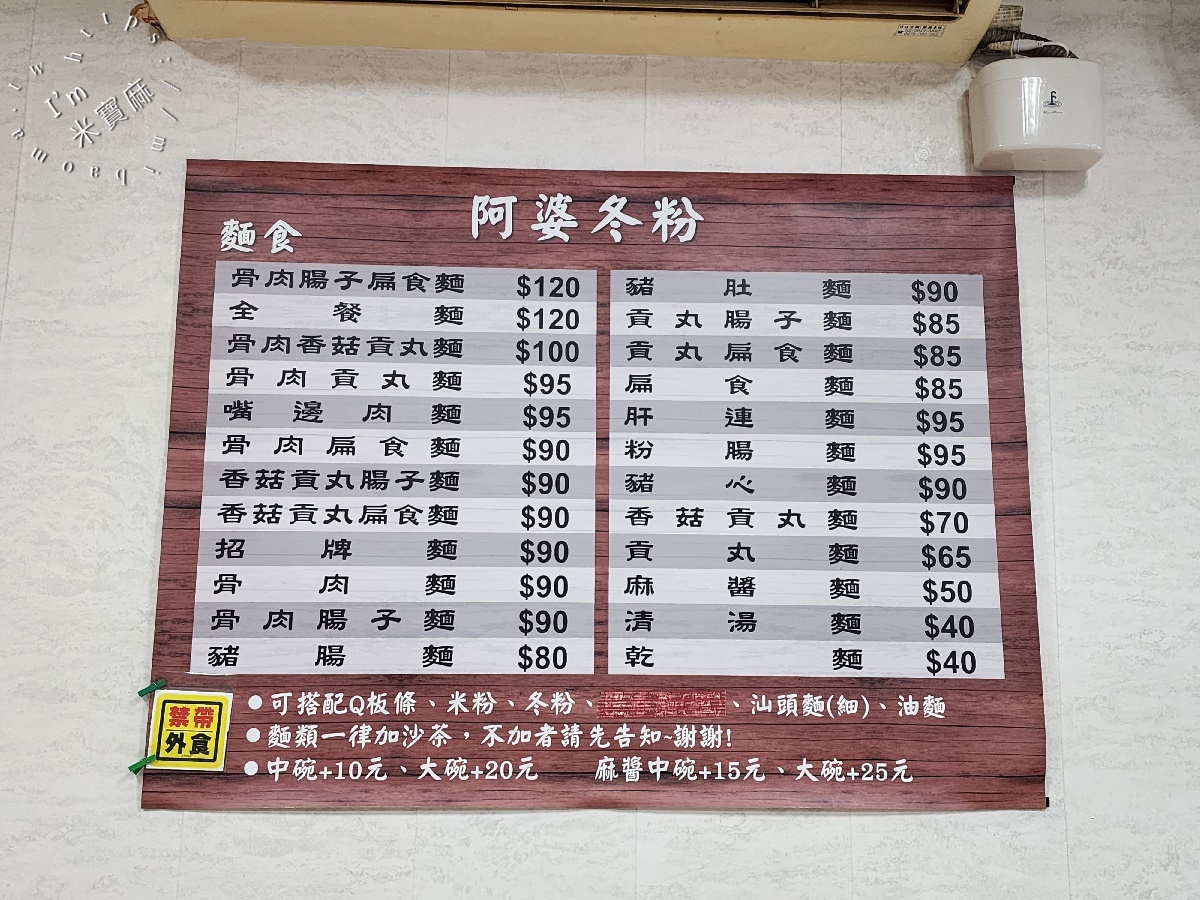 I'm
米寶麻
阿婆冬粉
麵食
骨肉腸子扁食麵 $120
全餐麵 $120
骨肉香菇貢丸麵 $100
骨肉貢丸麵 $95
嘴邊肉麵 $95
骨肉扁食麵 $90
香菇貢丸腸子麵 $90
香菇貢丸扁食麵 $90
招牌麵 $90
骨肉麵 $90
骨肉腸子麵 $90
豬腸麵 $80
豬肚麵 $90
貢丸腸子麵 $85
貢丸扁食麵 $85
扁食麵 $85
肝連麵 $95
粉腸麵 $95
豬心麵 $90
香菇貢丸麵 $70
貢丸麵 $65
麻醬麵 $50
清湯麵 $40
乾麵 $40
●可搭配Q板條、米粉、冬粉、、汕頭麵(細)、油麵
●麵類一律加沙茶，不加者請先告知~謝謝!
●中碗+10元、大碗+20元 麻醬中碗+15元、大碗+25元
禁帶
外食